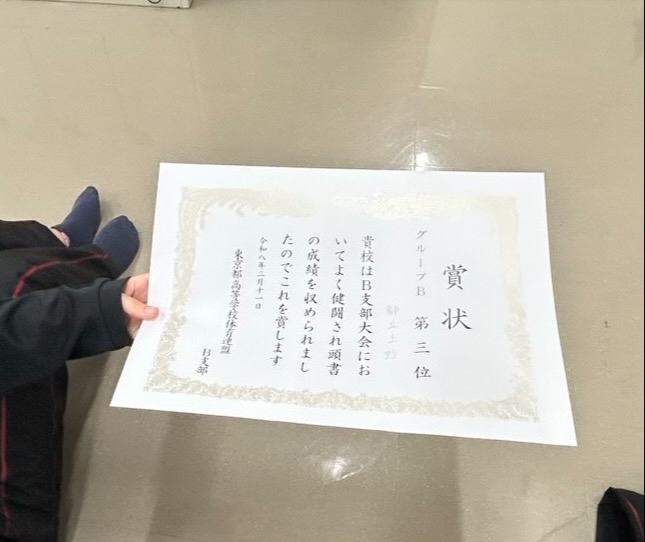 賞状
グループB 第三位
都立上野
貴校はB支部大会にお
いてよく健闘され頭書
の成績を収められまし
たのでこれを賞します
令和八年二月十一日
東京都高等学校体育連盟
B支部